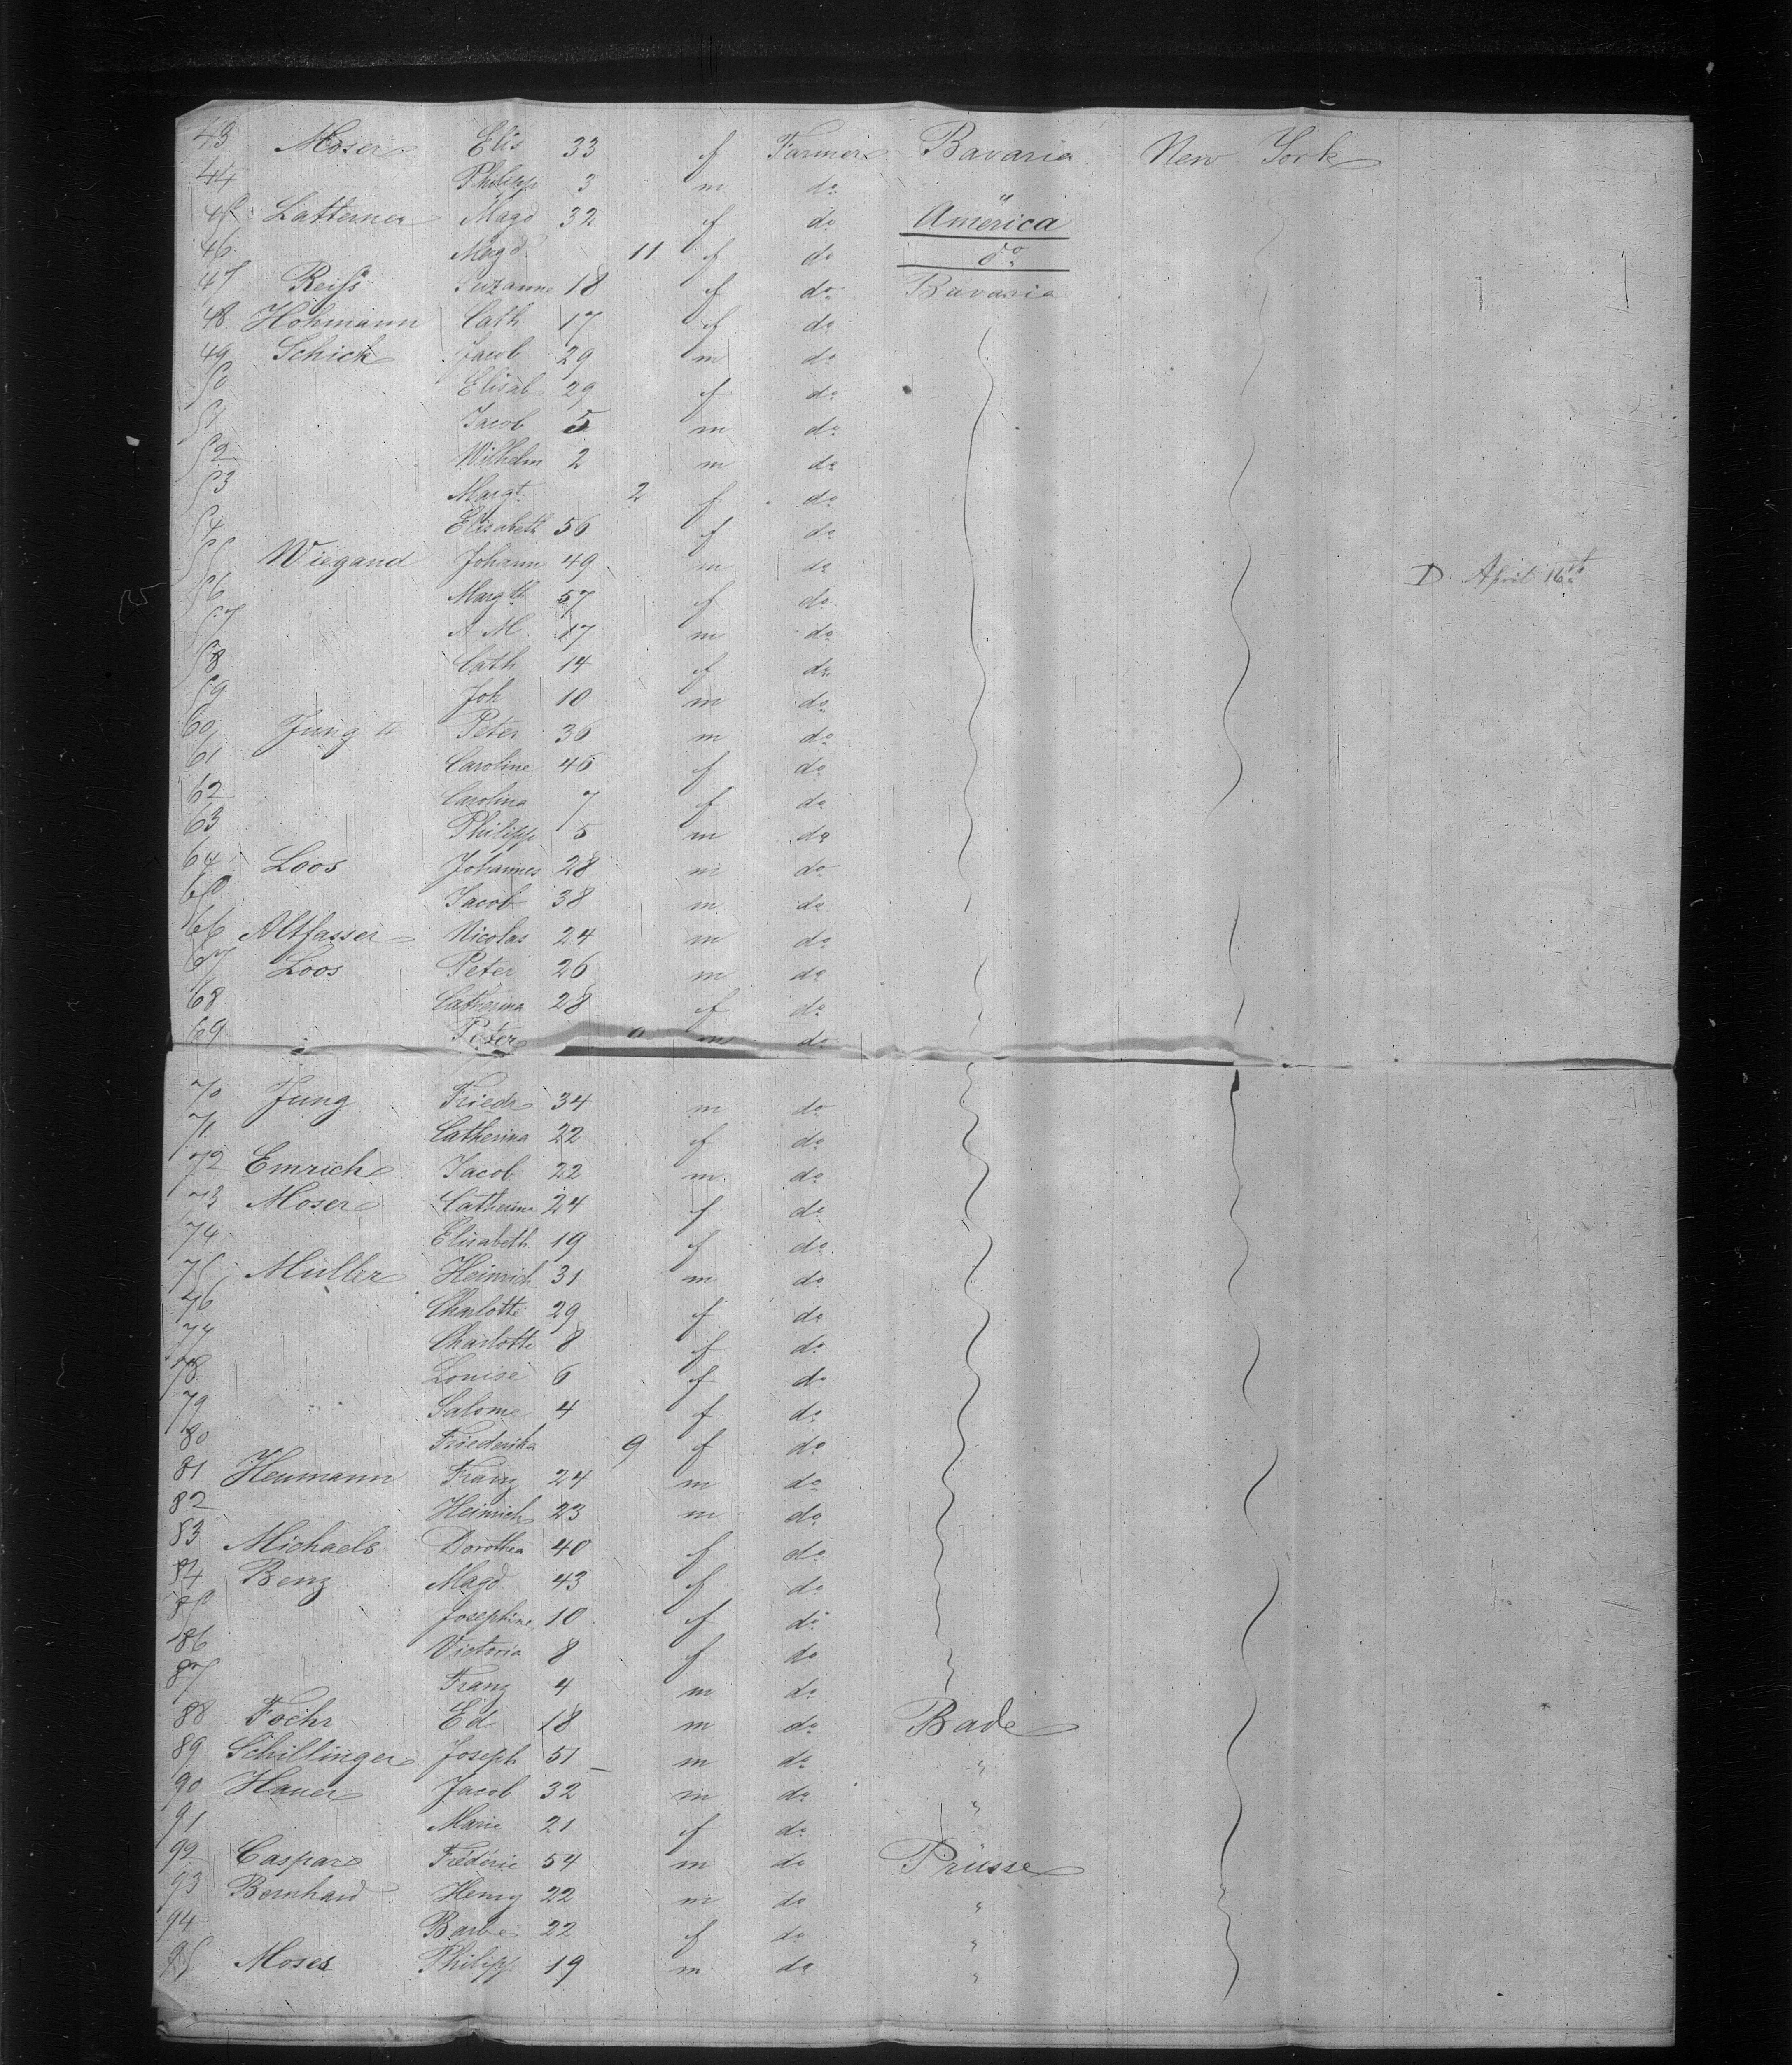 43 Moser Elis 33 f Farmer Bavaria New York
44 Philipp 3 m do "
45 Latterner Magd 32 f do America
46 Magd 11 f do do
47 Reiss Suzanne 18 f do Bavaria
48 Hohmann Cath 17 f do
49 Schick Jacob 29 m do
50 Elisab 29 f do
51 Jacob 5 m do
52 Wilhelm 2 m do
53 Margt 2 f do
54 Elisabeth 56 f do
55 Wiegand Johann 49 m do D April 16th
56 Margth 57 f do
57 A M 17 m do
58 Cath 14 f do
59 Joh 10 m do
60 Jung II Peter 36 m do
61 Caroline 46 f do
62 Carolina 7 f do
63 Philipp 5 m do
64 Loos Johannes 28 m do
65 Jacob 38 m do
66 Altfasser Nicolas 24 m do
67 Loos Peter 26 m do
68 Catherina 28 f do
69 Peter m do
70 Jung Friedr 34 m do
71 Catherina 22 f do
72 Emrich Jacob 22 m do
73 Moser Catherine 24 f do
74 Elisabeth 19 f do
75 Müller Heinrich 31 m do
76 Charlotte 29 f do
77 Charlotte 8 f do
78 Louise 6 f do
79 Salome 4 f do
80 Friederika 9 f do
81 Heumann Franz 24 m do
82 Heinrich 23 m do
83 Michaels Dorothea 40 f do
84 Benz Magd 43 f do
85 Josephine 10 f do
86 Victoria 8 f do
87 Franz 4 m do
88 Fochr Ed 18 m do Bade
89 Schillinger Joseph 51 m do "
90 Hauer Jacob 32 m do "
91 Marie 21 f do
92 Caspar Frédéric 54 m do Prusse
93 Bernhard Henry 22 m do "
94 Barbe 22 f do "
95 Moses Philipp 19 m do "